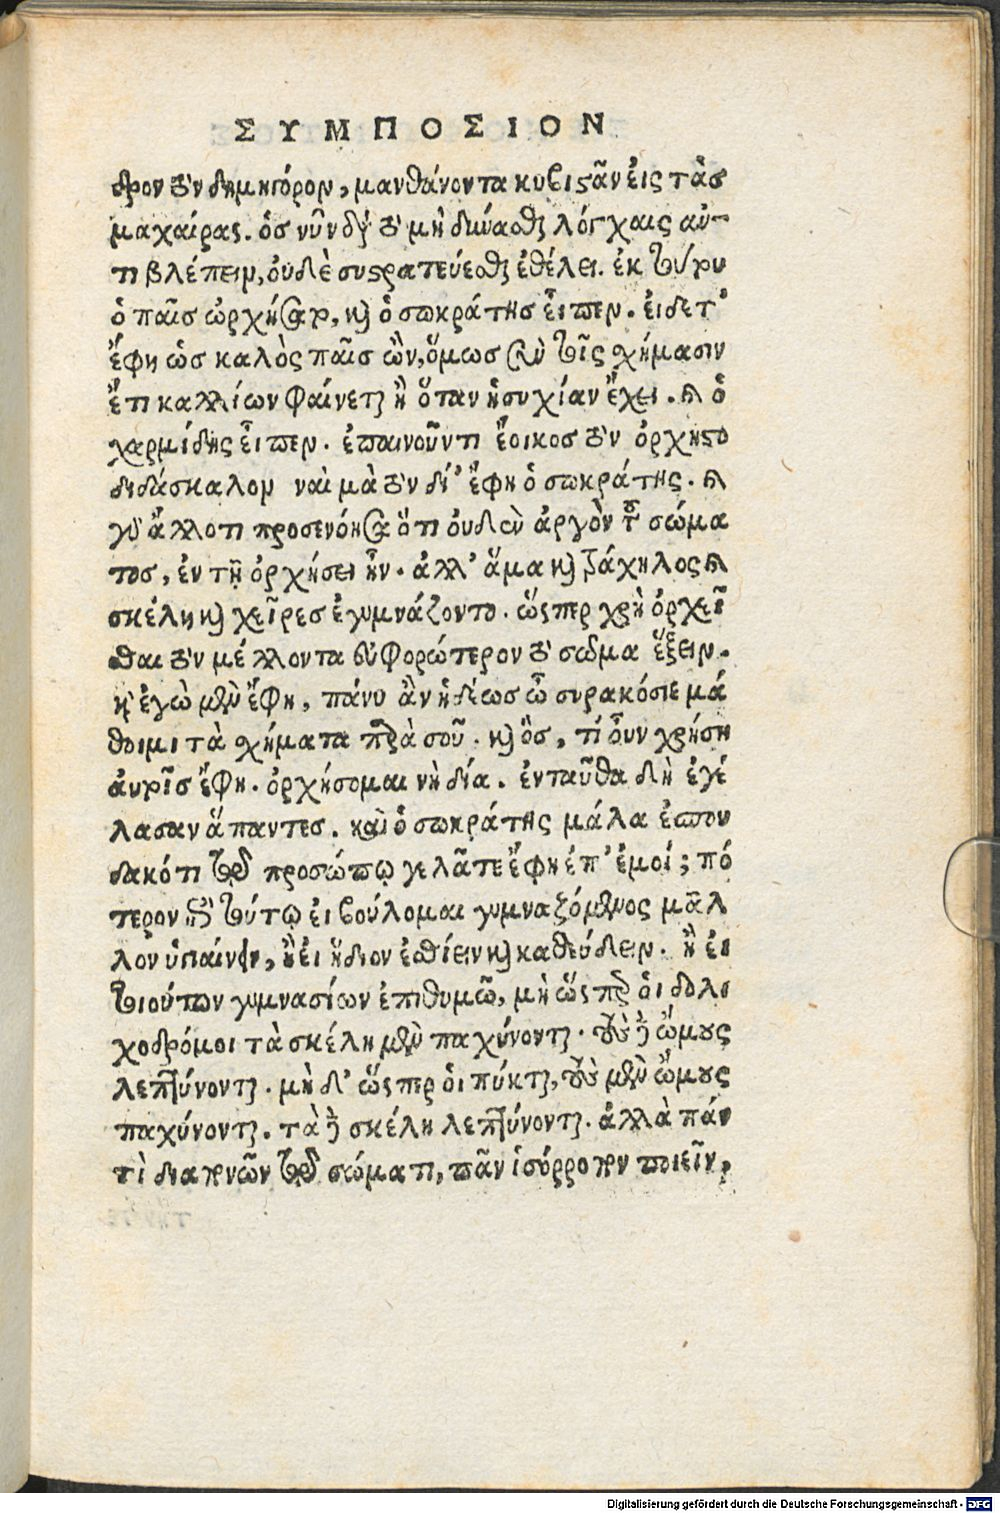 ΣΥΜΠΟΣΙΟΝ
δρον τὸν δημηγόρον, μανθάνοντα κυβιστᾶν εἰς τὰσ
μαχαίρας. ὁσ νῦν διὰ τὸ μὴ δύναοθαι λόγχαις αὐ-
τιβλέπειν, οὐδὲ συστρατεύεσθαι ἐθέλει. ἐκ τούτου
ὁ παῖσ ὠρχήσατο, καὶ ὁ σωκράτης εἶπεν. εἴδετ’
ἔφη ὡσ καλὸς παῖσ ὢν, ὅμωσ σὺν τοῖς χήμασιν
ἔτι καλλίων φαίνεται ἢ ὅταν ἡσυχίαν ἔχει. καὶ ὁ
χαρμίδης εἶπεν. ἐπαινοῦντι ἔοικοσ τὸν ὀρχηστο
διδάσκαλον ναὶ μὰ τὸν δί’ ἔφη ὁ σωκράτης. καὶ
γὰρ ἄλλοτι προσενόησα ὅτι οὐδὲν ἀργὸν τοῦ σώμα
τοσ, ἐν τῇ ὀρχήσει ἦν. ἀλλ’ ἅμα καὶ τράχηλος καὶ
σκέλη καὶ χεῖρεσ ἐγυμνάζοντο. ὥςπερ χρὴ ὀρχεῖ
σθαι τὸν μέλλοντα εὐφορώτερον τὸ σῶμα ἕξειν.
καὶ ἐγὼ μὲν ἔφη, πάνυ ἂν ἡδέωσ ὦ συρακόσιε μά
θοιμι τὰ χήματα παρὰ σοῦ. καὶ ὃσ, τί οὖν χρήση
αὐτοῖσ ἔφη. ὀρχήσομαι νὴ δία. ἐνταῦθα δὴ ἐγέ
λασαν ἅπαντεσ. καὶ ὁ σωκράτης μάλα ἐσπου
δακότι τῷ προσώπῳ γελᾶτε ἔφη ἐπ’ ἐμοί; πό
τερον ἐπὶ τούτῳ εἰ βούλομαι γυμναζόμενος μᾶλ
λον ὑγιαίνειν, ἢ εἰ ἥδιον ἐσθίειν καὶ καθεύδειν. ἢ εἰ
τοιούτων γυμνασίων ἐπιθυμῶ, μὴ ὥςπερ οἱ δολι
χοδρόμοι τὰ σκέλη μὲν παχύνονται. τοὺς δὲ ὤμους
λεπτύνονται. μὴ δ’ ὥςπερ οἱ πύκται, τοὺς μὲν ὤμους
παχύνονται. τὰ δὲ σκέλη λεπτύνονται. ἀλλὰ παν
τὶ διαπονῶν τῷ σώματι, πᾶν ἰσόρροπον ποιεῖν,
Digitalisierung gefördert durch die Deutsche Forschungsgemeinschaft - DFG